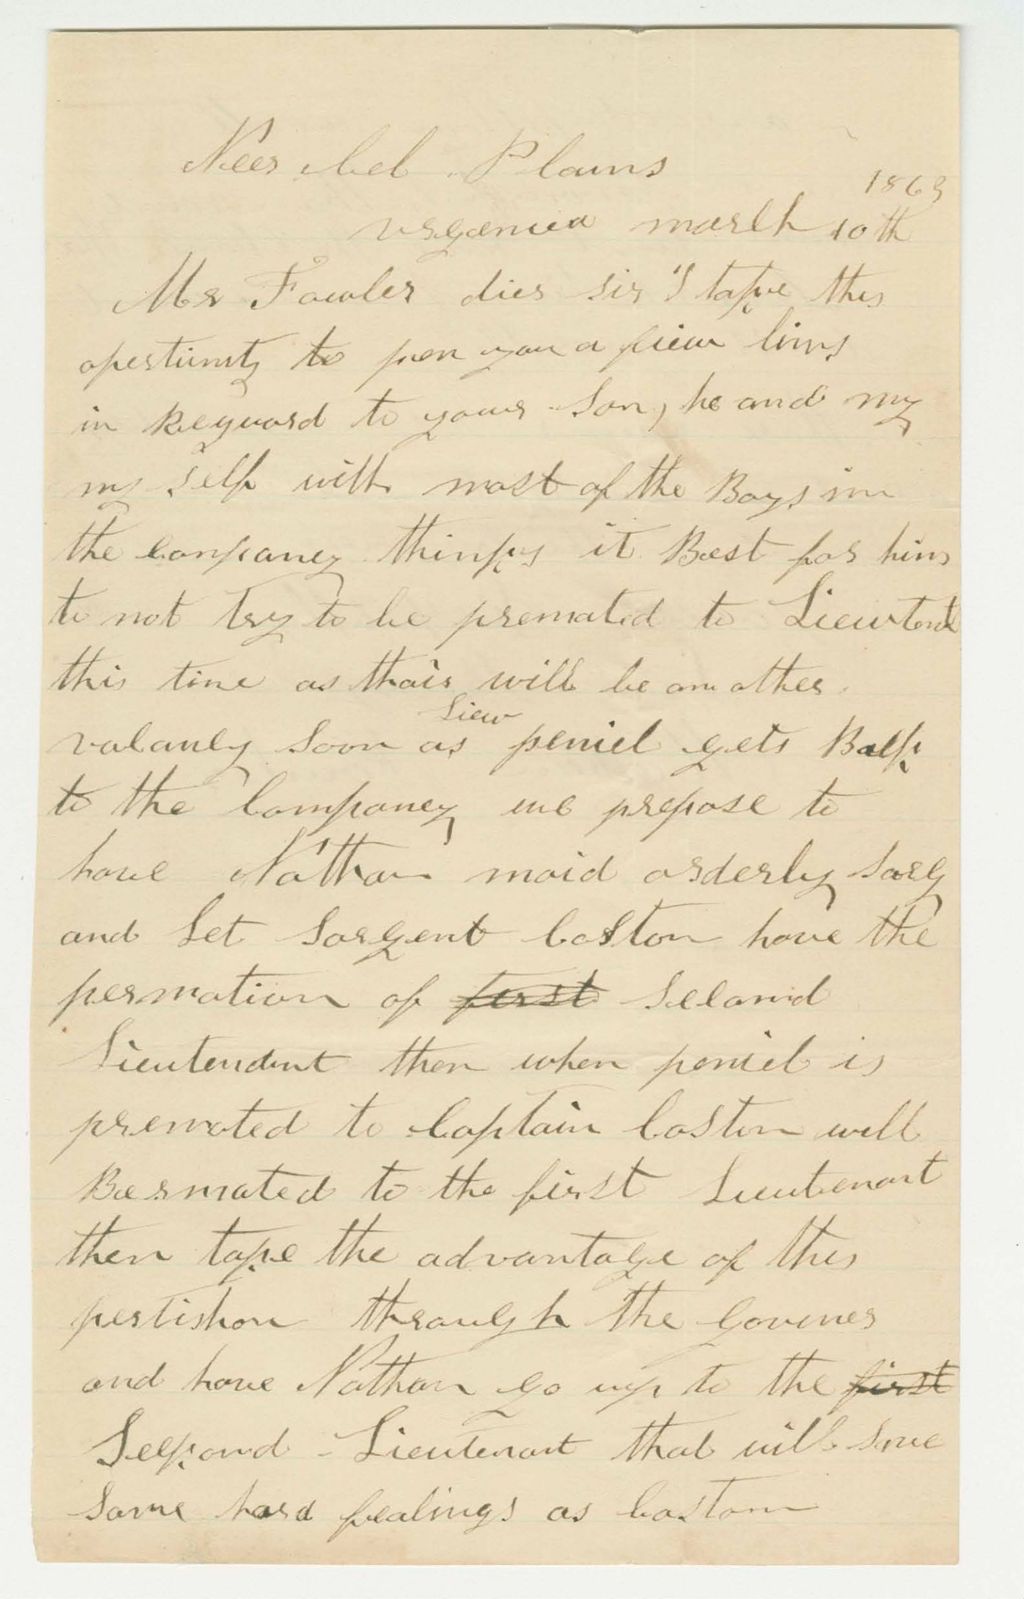 Neer bel Plains
1863
vrgenied march 10th
Mr Fowler dier sir I take this
opertunity to pen you a fiew lins
in Reguard to your Son, he and my
my self with most of the Boys inn
the companey thinks it Best for him
to not try to be premated to Liewtend
this time as thair will be an other
Liew
vacancy soon as peniel gets Back
to the companey we prepose to
have Nathan maid orderly Sarg
and Let Sargent Coston have the
permation of first Secand
Lieutendent then when peniel is
premoted to Captain Coston will
Be rmated to the first Lieutenant
then take the advantage of this
pertishon through the Govener
and have Nathan go up to the first
Seckond Lieutenant that will Save
Some hard fealings as Coston